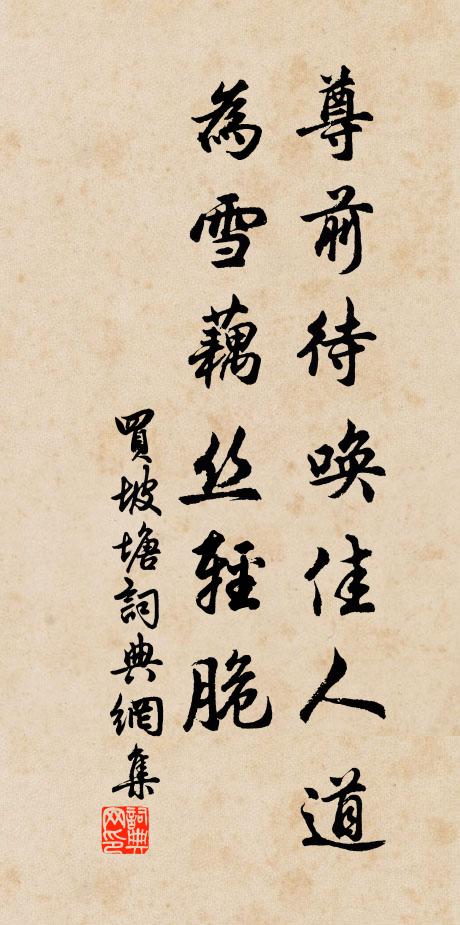 尊前待唤佳人道
為雪藕丝輕脆
買坡塘詞典網集
詞典
网印